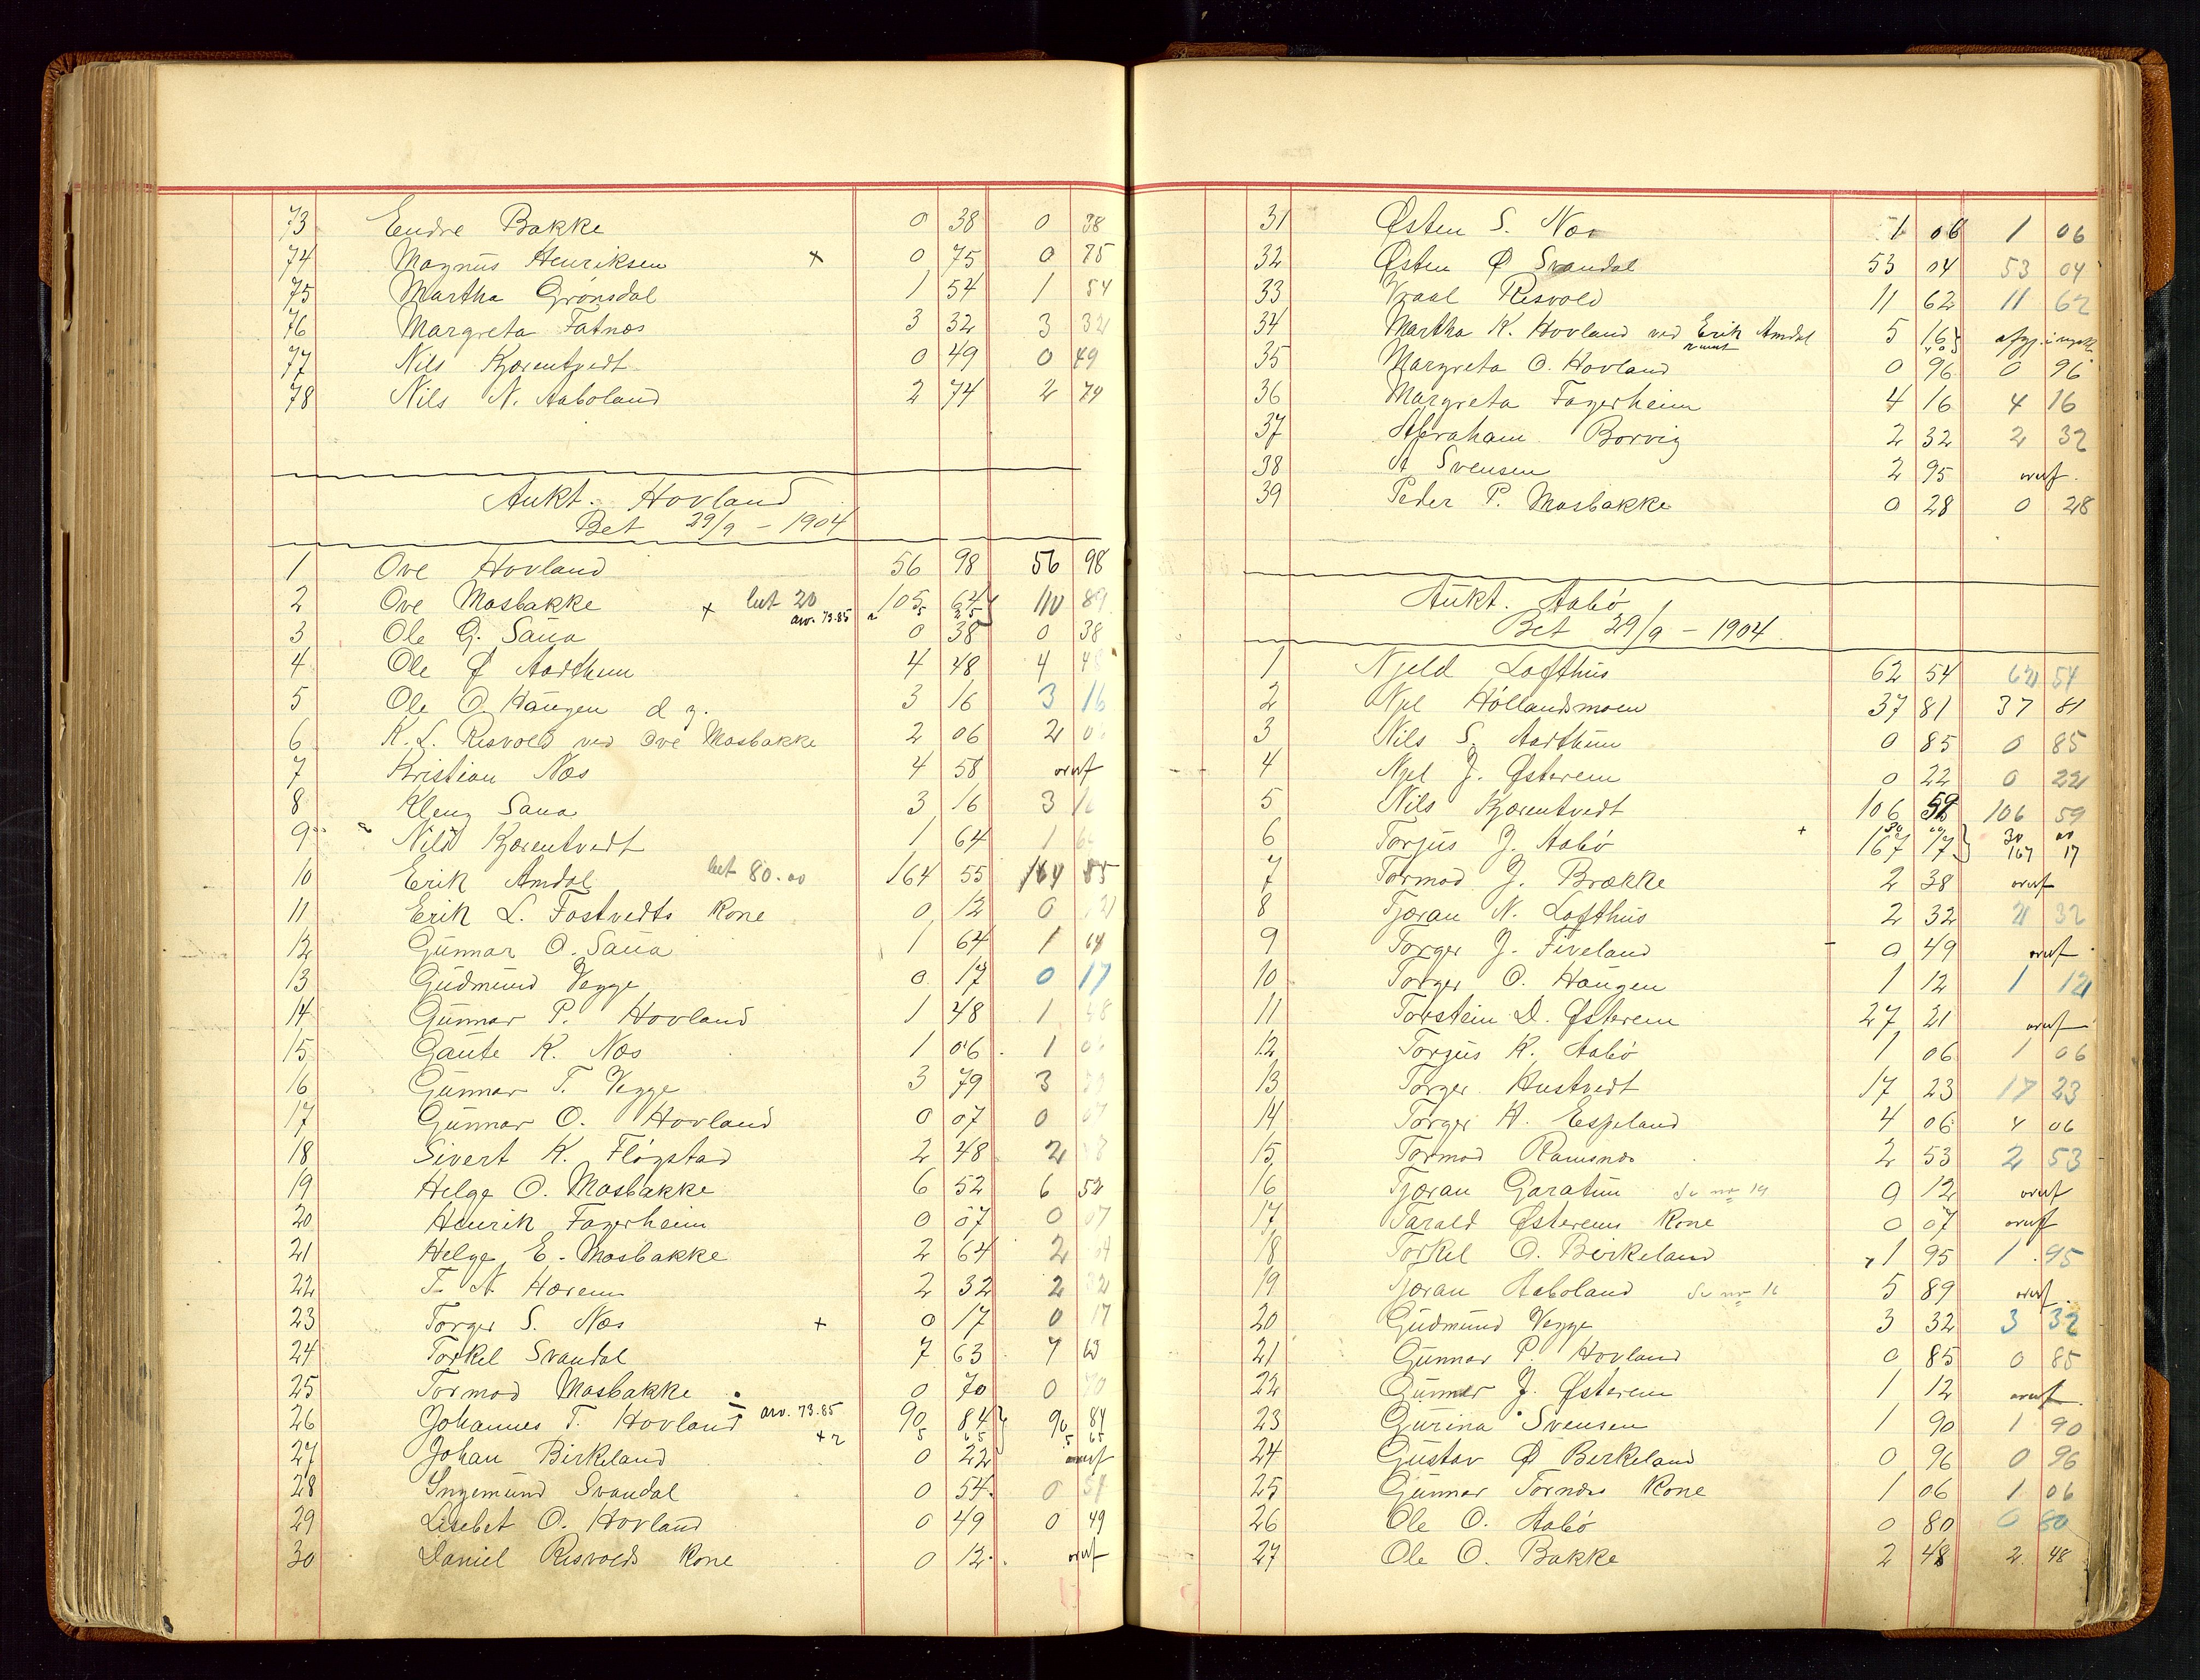 73 Endre Bakke 0 38 0 38
74 Magnus Henriksen + 0 75 0 75
75 Martha Grønsdal 1 54 1 54
76 Margreta Fatnæs 3 32 3 32
77 Nils Kjærentvedt 0 49 0 49
78 Nils N. Aaboland 2 74 2 74
Aukt. Hovland
Bet 29/9 - 1904
1 Ove Hovland 56 98 56 98
2 Ove Mosbakke + bet 20 105 64 110 89
arv. 73.85 5 25
3 Ole G. Saua 0 38 0 38
4 Ole Ø Aarthun 4 48 4 48
5 Ole O. Haugen d y. 3 16 3 16
6 K. L. Risvold ved Ove Mosbakke 2 06 2 06
7 Kristian Næs 4 58 overf
8 Kleng Saua 3 16 3 16
9 Nils Kjærentvedt 1 64 1 64
10 Erik Amdal bet 80.00 164 55 164 55
11 Erik L. Fostvedts Kone 0 12 0 12
12 Gunnar O. Saua 1 64 1 64
13 Gudmund Vegge 0 17 0 17
14 Gunnar P. Hovland 1 48 1 48
15 Gaute K. Næs 1 06 1 06
16 Gunnar T. Vegge 3 79 3 79
17 Gunnar O. Hovland 0 07 0 07
18 Sivert K. Fløgstad 2 48 2 48
19 Helge O. Mosbakke 6 52 6 52
20 Henrik Fagerheim 0 07 0 07
21 Helge E. Mosbakke 2 64 2 64
22 T. N. Hærem 2 32 2 32
23 Torger S. Næs + 0 17 0 17
24 Torkel Svandal 7 63 7 63
25 Tormod Mosbakke 0 70 0 70
26 Johannes T. Hovland arv. 73.85 90 84 90 84
5 65 5 65
27 Johan Birkeland 0 22 overf
28 Ingemund Svandal 0 54 0 54
29 Lisebet O. Hovland 0 49 0 49
30 Daniel Risvolds Kone 0 12 overf
31 Østen S. Næs 1 06 1 06
32 Østen Ø Svandal 53 04 53 04
33 Vraal Risvold 11 62 11 62
34 Martha K. Hovland ved Erik Amdal 5 16
35 Margreta O. Hovland 0 96 0 96
36 Margreta Fagerheim 4 16 4 16
37 Abraham Borvig 2 32 2 32
38 A Svensen 2 95 overf.
39 Peder P. Mosbakke 0 28 0 28
Aukt. Aabø
Bet 29/9 - 1904
1 Njeld Lofthus 62 54 62 54
2 Njel Høllandsmoen 37 81 37 81
3 Nils S. Aarthun 0 85 0 85
4 Njel J. Østerem 0 22 0 22
5 Nils Kjærentvedt 106 59 106 59
30 00 30 00
6 Torjus J. Aabø + 167 17 167 17
7 Tormod J. Brække 2 38 overf
8 Tjøran N. Lofthus 2 32 2 32
9 Torger J. Fiveland 0 49 overf
10 Torger O. Haugen 1 12 1 12
11 Torstein D. Østerem 27 21 overf
12 Torjus K. Aabø 1 06 1 06
13 Torger Hustvedt 17 23 17 23
14 Torger H. Espeland 4 06 4 06
15 Tormod Ramsnæs 2 53 2 53
16 Tjøran Garatun Se no 19 9 12 overf
17 Tarald Østerems Kone 0 07 overf
18 Torkel O. Birkeland 1 95 1 95
19 Tjøran Aaboland Se no 16 5 89 overf
20 Gudmund Vegge 3 32 3 32
21 Gunnar P. Hovland 0 85 0 85
22 Gunnar J. Østerem 1 12 overf.
23 Gurina Svensen 1 90 1 90
24 Gustav Ø Berkeland 0 96 0 96
25 Gunnar Tornæs Kone 1 06 1 06
26 Ole O. Aabø 0 80 0 80
27 Ole O. Bakke 2 48 2 48